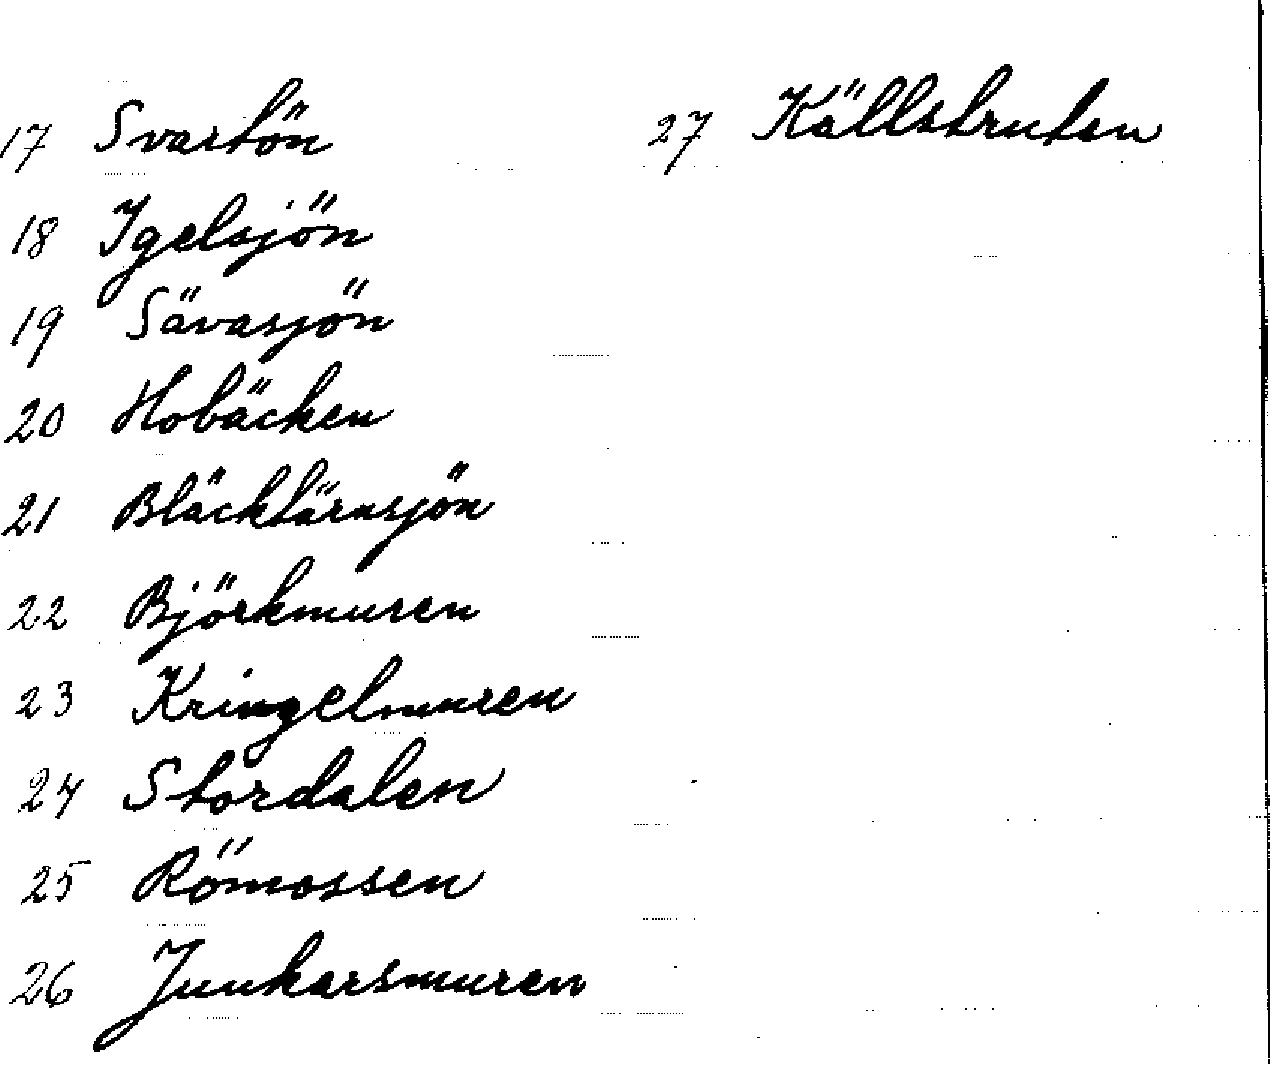 17 Svartön
18 Igelsjön
19 Sävasjön
20 Hobäcken
21 Bläcktärnsjön
22 Björkmuren
23 Kringelmuren
24 Stordalen
25 Römossen
26 Junkarsmuren
27 Källstruten